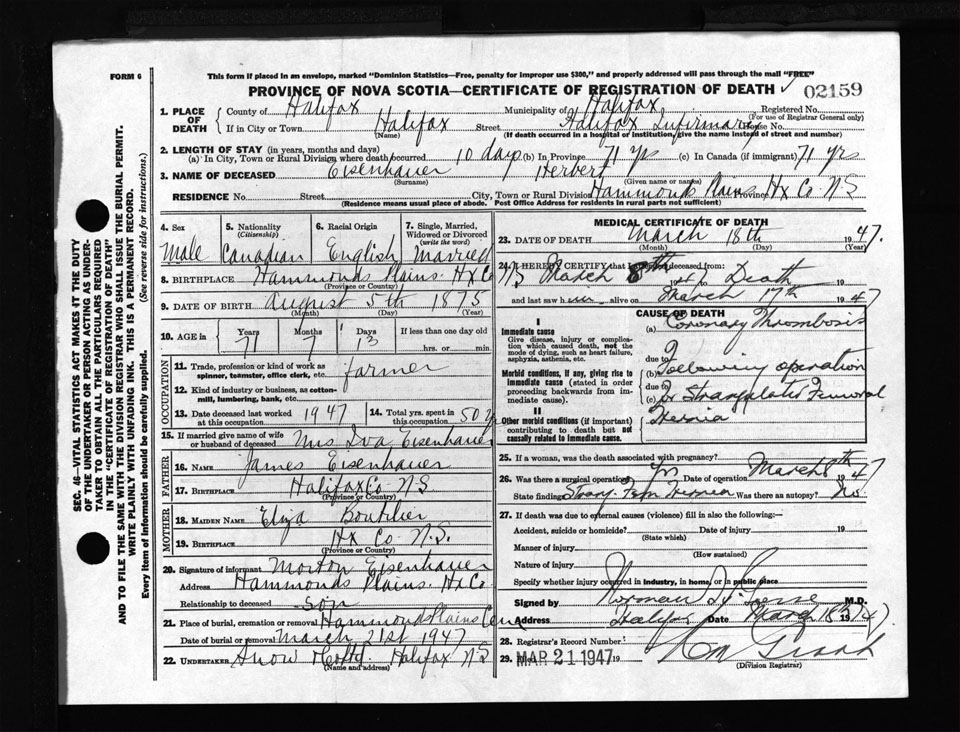 FORM 6
This form if placed in an envelope, marked "Dominion Statistics—Free, penalty for improper use $300," and properly addressed will pass through the mail "FREE"
PROVINCE OF NOVA SCOTIA—CERTIFICATE OF REGISTRATION OF DEATH 02159
1. PLACE OF DEATH County of Halifax Municipality of Halifax Registered No.
(For use of Registrar General only)
If in City or Town Halifax Street Halifax Infirmary House No.
(Name) (If death occurred in a hospital or institution, give name instead of street and number)
2. LENGTH OF STAY (in years, months and days)
(a) In City, Town or Rural Division where death occurred 10 days (b) In Province 71 yrs (c) In Canada (if immigrant) 71 yrs
3. NAME OF DECEASED Eisenhauer, Herbert
(Surname) (Given name or names)
RESIDENCE No. Street City, Town or Rural Division Hammonds Plains Province Hx Co. N.S
(Residence means usual place of abode. Post Office Address for residents in rural parts not sufficient)
SEC. 46—VITAL STATISTICS ACT MAKES IT THE DUTY
OF THE UNDERTAKER OR PERSON ACTING AS UNDER-
TAKER TO OBTAIN ALL THE PARTICULARS REQUIRED
IN THE "CERTIFICATE OF REGISTRATION OF DEATH"
AND TO FILE THE SAME WITH THE DIVISION REGISTRAR WHO SHALL ISSUE THE BURIAL PERMIT.
WRITE PLAINLY WITH UNFADING INK. THIS IS A PERMANENT RECORD.
Every item of information should be carefully supplied. (See reverse side for instructions.)
4. Sex 5. Nationality (Citizenship) 6. Racial Origin 7. Single, Married, Widowed or Divorced (write the word)
Male Canadian English Married
8. BIRTHPLACE Hammonds Plains. Hx Co
(Province or Country)
9. DATE OF BIRTH August 5th 1875
(Month) (Day) (Year)
10. AGE in Years Months Days If less than one day old
71 7 13 hrs. or min.
OCCUPATION
11. Trade, profession or kind of work as spinner, teamster, office clerk, etc. farmer
12. Kind of industry or business, as cotton-mill, lumbering, bank, etc.
13. Date deceased last worked at this occupation 1947 14. Total yrs. spent in this occupation 50 yrs
15. If married give name of wife or husband of deceased Mrs Iva Eisenhauer
FATHER
16. NAME James Eisenhauer
17. BIRTHPLACE Halifax Co N.S
(Province or Country)
MOTHER
18. MAIDEN NAME Eliza Boutilier
19. BIRTHPLACE Hx Co N.S.
(Province or Country)
20. Signature of informant Morton Eisenhauer
Address Hammonds Plains. Hx Co.
Relationship to deceased son
21. Place of burial, cremation or removal Hammonds Plains Cem
Date of burial or removal March 21st 1947
22. UNDERTAKER Snow & Co Ltd. Halifax N.S
(Name and address)
MEDICAL CERTIFICATE OF DEATH
23. DATE OF DEATH March 18th 1947.
(Month) (Day) (Year)
24. I HEREBY CERTIFY that I attended deceased from:
March 8th to Death 19
and last saw him alive on March 17th 1947
CAUSE OF DEATH
I
Immediate cause
Give disease, injury or complication which caused death, not the mode of dying, such as heart failure, asphyxia, asthenia, etc.
(a) Coronary Thrombosis
due to
Morbid conditions, if any, giving rise to immediate cause (stated in order proceeding backwards from immediate cause).
(b) Following operation
due to
(c) for Strangulated Femoral
Hernia
II
Other morbid conditions (if important) contributing to death but not causally related to immediate cause.
25. If a woman, was the death associated with pregnancy?
26. Was there a surgical operation? yes Date of operation March 8th 1947
State findings Strang. Fem Hernia Was there an autopsy? No.
27. If death was due to external causes (violence) fill in also the following:—
Accident, suicide or homicide? Date of injury 19
(State which)
Manner of injury
(How sustained)
Nature of injury
Specify whether injury occurred in industry, in home, or in public place
Signed by Norman M.D.
Address Halifax Date March 18 1947
28. Registrar's Record Number
29. MAR 21 1947 19
(Division Registrar)